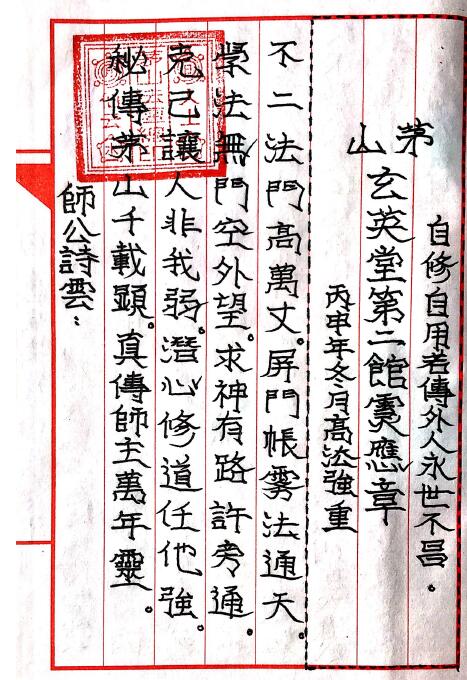 自修自用若傳外人永世不昌。
茅山
玄英堂第二館靈應章
丙申年冬月高法強重
不二法門高萬丈。屏門帳雾法通天。
學法無門空外望。求神有路許旁通。
克己讓人非我弱。潛心修道任他強。
秘傳茅山千載顯。真傳師主萬年靈。
師公詩雲：